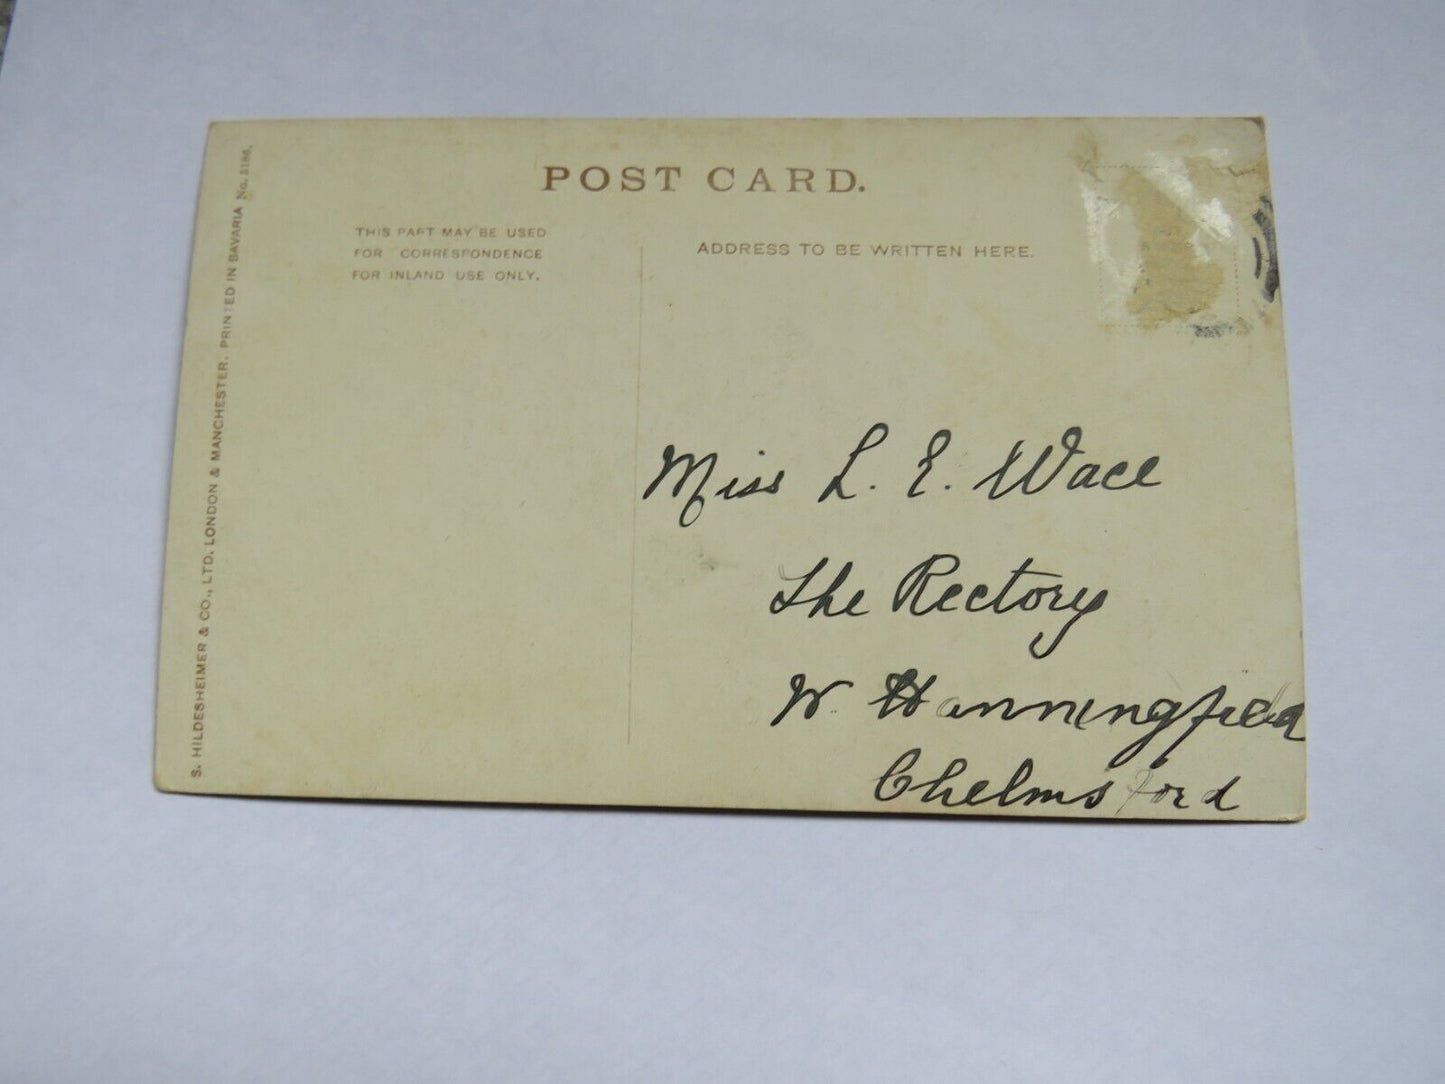 POST CARD.
THIS PART MAY BE USED
FOR CORRESPONDENCE
FOR INLAND USE ONLY.
ADDRESS TO BE WRITTEN HERE.
Miss L. E. Wace
The Rectory
W. Hanningfield
Chelmsford
S. HILDESHEIMER & CO., LTD. LONDON & MANCHESTER. PRINTED IN BAVARIA No. 5186.